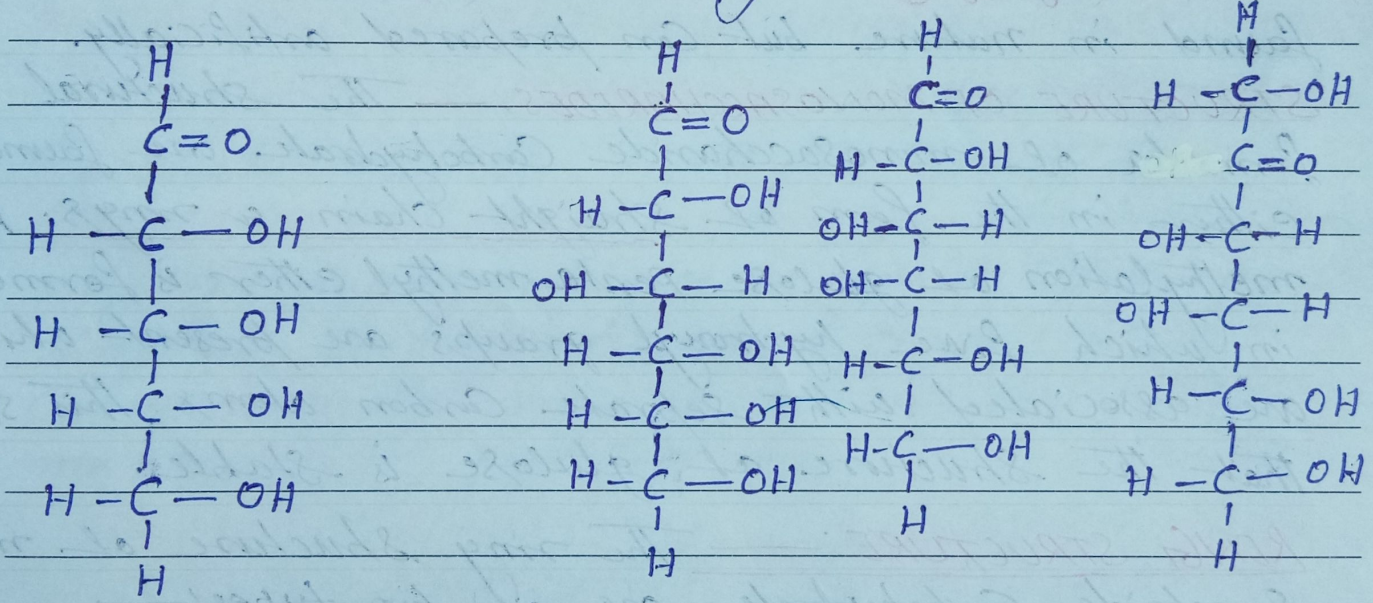 H
C=O
H-C-OH
H-C-OH
H-C-OH
H-C-OH
H
H
C=O
H-C-OH
OH-C-H
H-C-OH
H-C-OH
H-C-OH
H
H
C=O
H-C-OH
OH-C-H
OH-C-H
H-C-OH
H-C-OH
H
H
H-C-OH
C=O
OH-C-H
OH-C-H
H-C-OH
H-C-OH
H